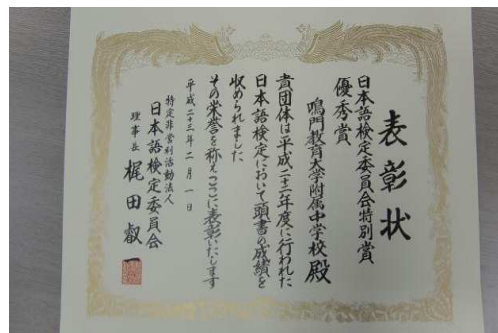 表彰状
日本語検定委員会特別賞
優秀賞
鳴門教育大学附属中学校殿
貴団体は平成二十二年度に行われた
日本語検定において頭書の成績を
収められました
その栄誉を称えここに表彰いたします
平成二十三年二月一日
特定非営利活動法人
日本語検定委員会
理事長 梶田叡一